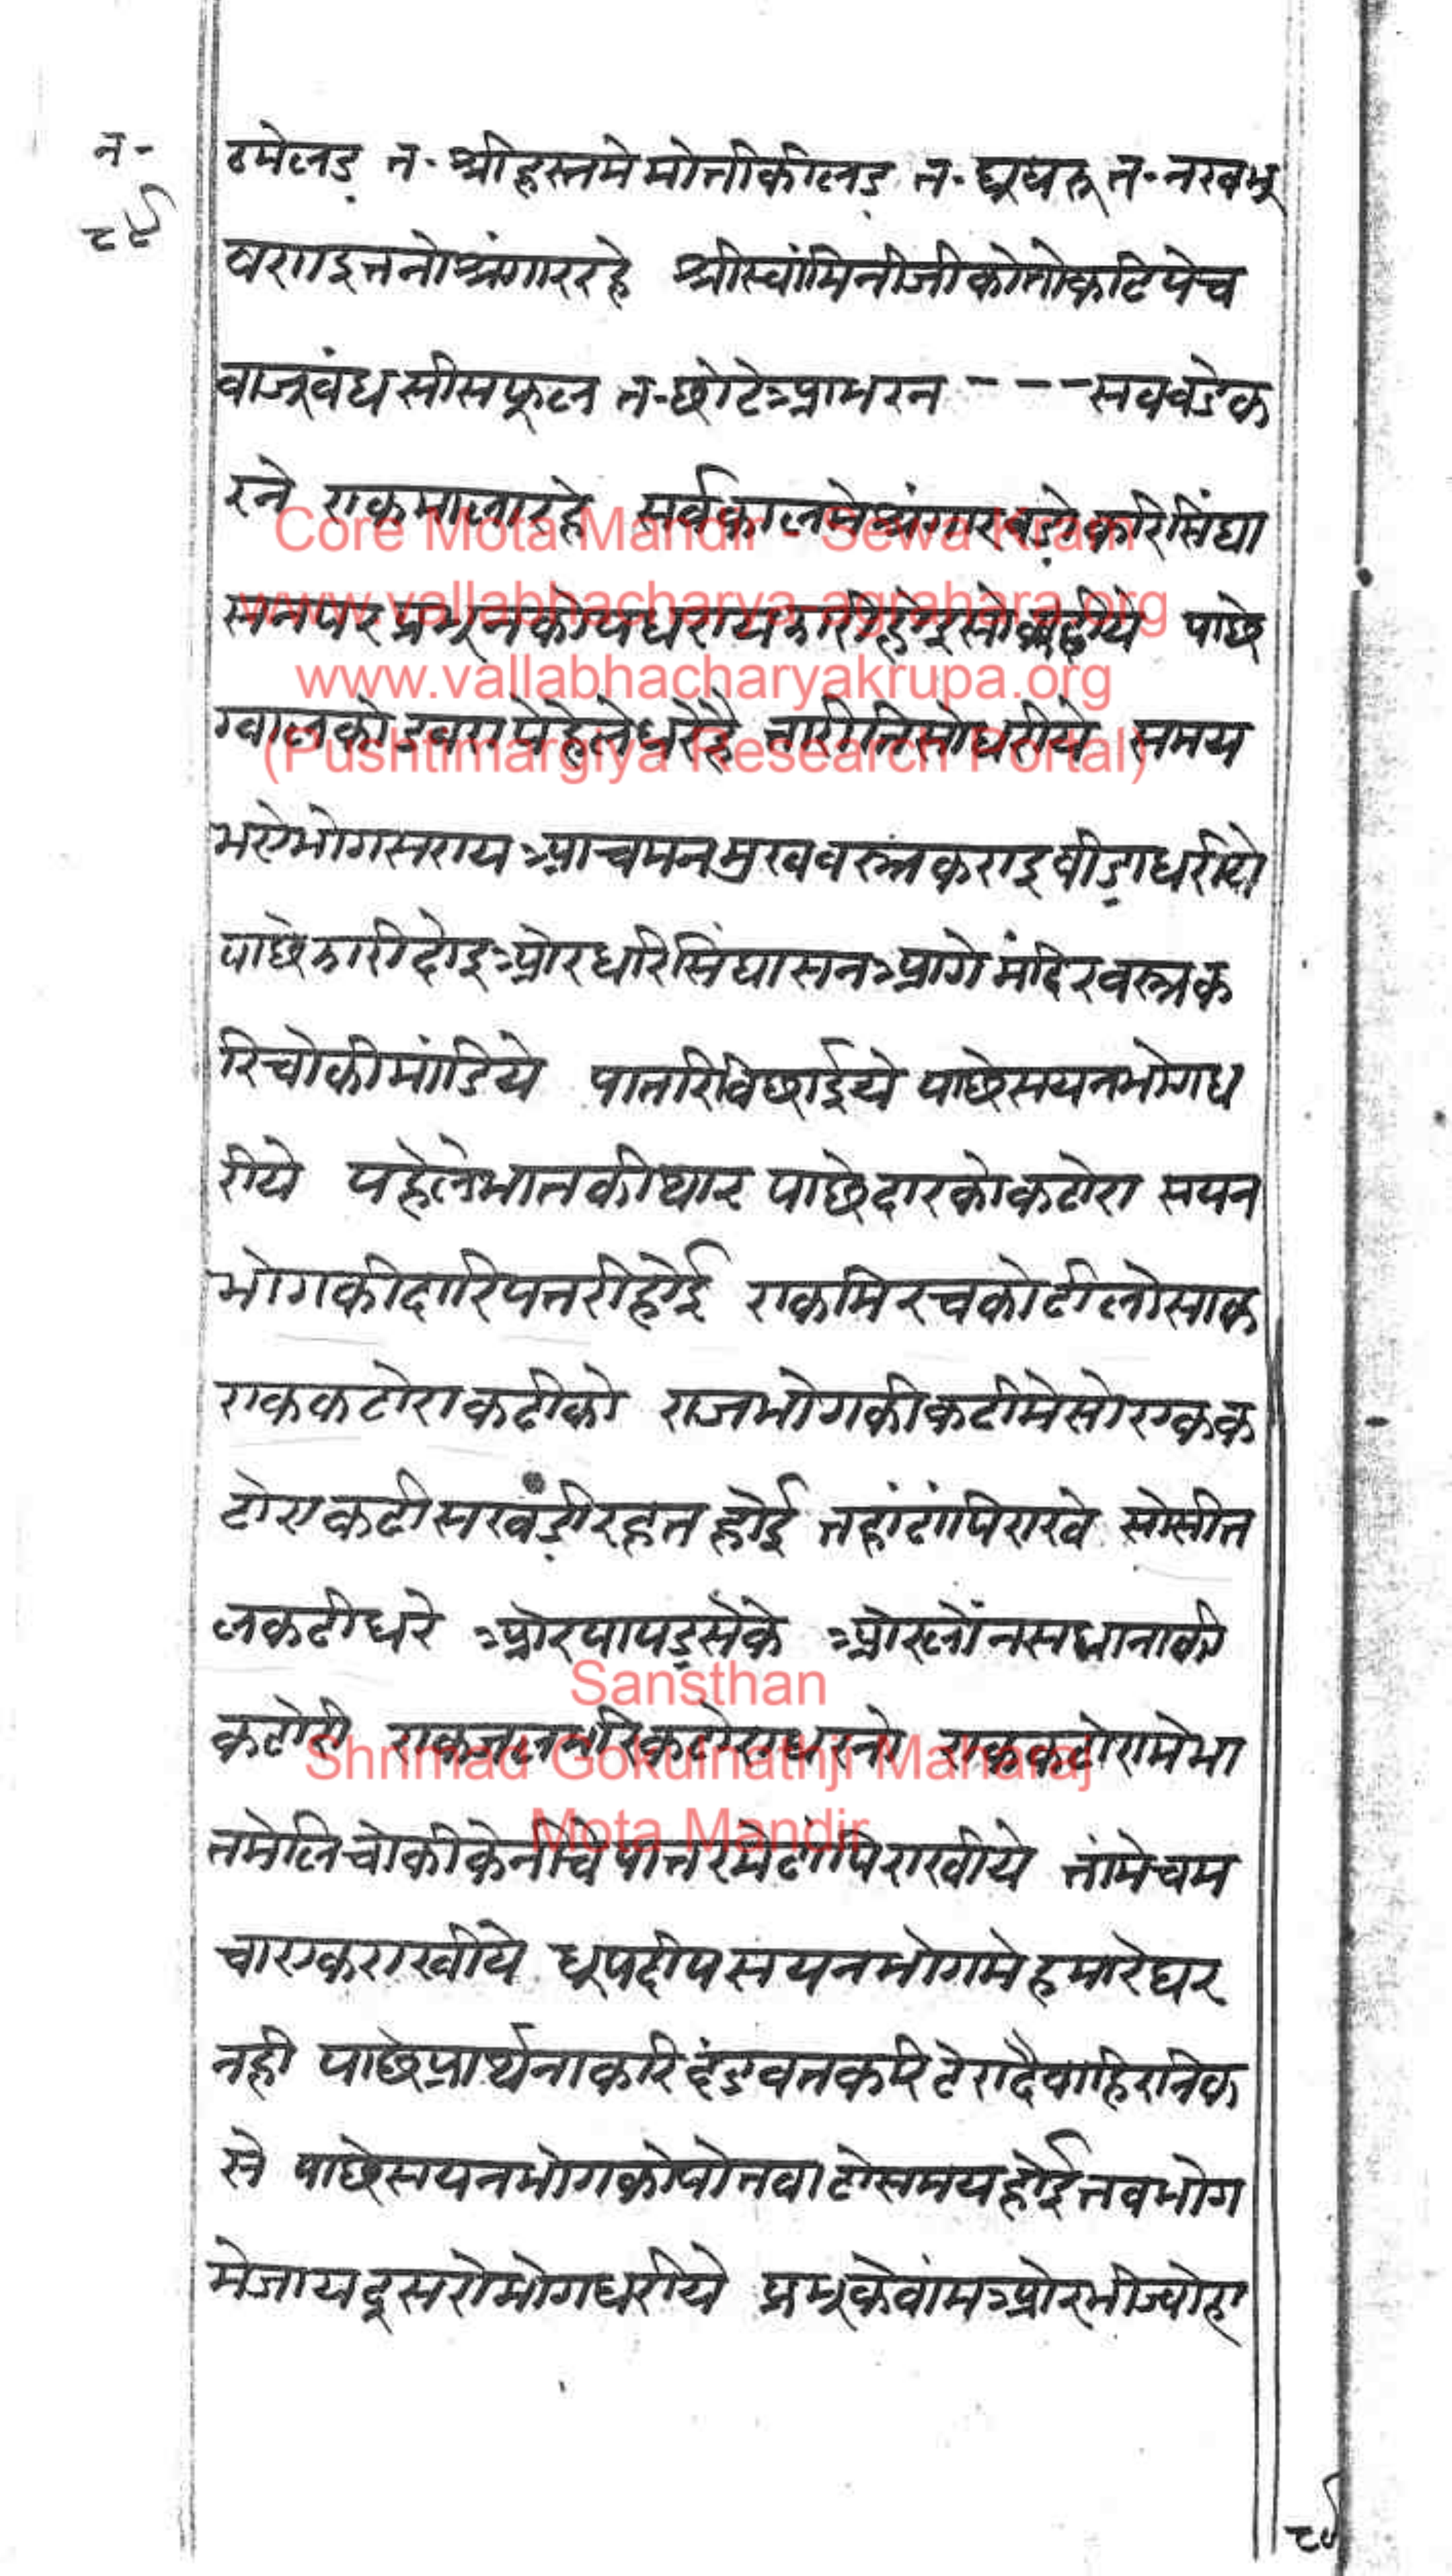 न-
८९
टमेलड़ त- श्रीहस्तमे मोतीकीलड़ त- घूघरू त- नखभू
षण इतनो श्रंगार रहे श्रीस्वांमिनीजीकोतो कटिपेच
वाजूवंध सीसफूल त- छोटे आभरन - - - सव वडेक
रने एकमालारहे सर्वकालमे श्रंगारवड़ोकरिसिंघा
सनपर प्रभूनकोपधराय झारी पाछे
ग्वालको धरेहै तारीतिसोधरीये समय
भएभोगसराय आचमनमुखवस्त्रकराइ वीड़ाधरीये
पाछेझारीदोइ ओरधरि सिंघासन आगे मंदिरवस्त्रक
रिचोकीमांडिये पातरिविछाईये पाछेसयनभोगध
रीये पहेलेभातकीथार पाछेदारकोकटोरा सयन
भोगकीदारिपतरीहोई एकमिरचकोटीलोसाक
एककटोराकढीको राजभोगकीकढीमेसोएकक
टोराकढीसखंड़ीरहतहोई तहांढांपिराखे सोसीत
लकढीधरे ओरपापड़सेके ओरलोंनसधानाकी
कटोरी एकजलभरिकटोराधरनो एककटोरामेभा
तमेलिचोकीकेनीचेपातरमेढांपिराखीये तांमेचम
चाएकराखीये धूपदीपसयनभोगमेहमारेघर
नही पाछेप्रार्थनाकरि दंडवतकरि टेरादैवाहिरनिक
से पाछेसयनभोगकोपोनवाटोसमयहोई तवभोग
मेजाय दूसरोभोगधरीये प्रभूकेवांम ओरभीज्योरू
८९
Core Mota Mandir - Sewa Kram
www.vallabhacharya-agrahara.org
www.vallabhacharyakrupa.org
(Pushtimargiya Research Portal)
Sansthan
Shrimad Gokulnathji Maharaj
Mota Mandir